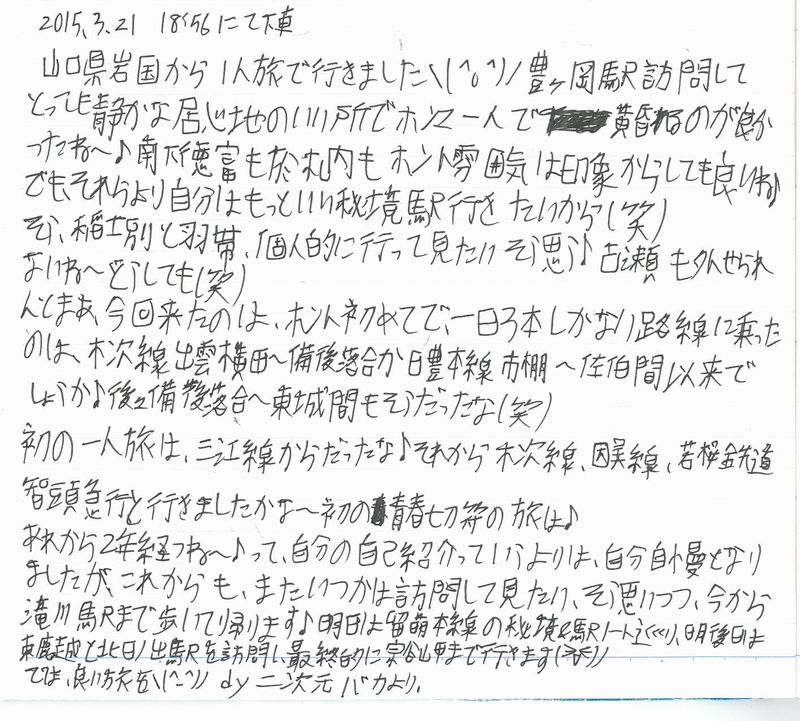 2015.3.21 18:56にて下車
山口県岩国から1人旅で行きました\(^o^)/豊ヶ岡駅訪問して
とっても静かな居心地のいい所でホンマ一人で黄昏るのが良か
ったね〜♪南下徳富も於札内もホント雰囲気は印象からしても良いね♪
でも、それらより自分はもっといい秘境駅行きたいから(笑)
そう、稲士別と羽帯、個人的に行って見たいそう思う♪古瀬も外せられ
ないね〜どうしても(笑)
んとまあ、今回来たのは、ホント初めてで、一日3本しかない路線に乗った
のは、木次線出雲横田〜備後落合か日豊本線市棚〜佐伯間以来で
しょうか♪後々備後落合〜東城間もそうだったな(笑)
初の一人旅は、三江線からだったな♪それから木次線、因美線、若桜鉄道
智頭急行と行きましたかな〜初の青春切符の旅は♪
あれから2年経つね〜♪って、自分の自己紹介っていうよりは、自分自慢となり
ましたが、これからも、またいつかは訪問して見たい、そう思いつつ、今から
滝川駅まで歩いて帰ります♪明日は留萌本線の秘境駅ノートめぐり、明後日は
東鹿越と北日ノ出駅を訪問し最終的に宗谷山甲まで行きます(笑)ノ
では、良い旅を\(^-^)ノ dy 二次元バカより。